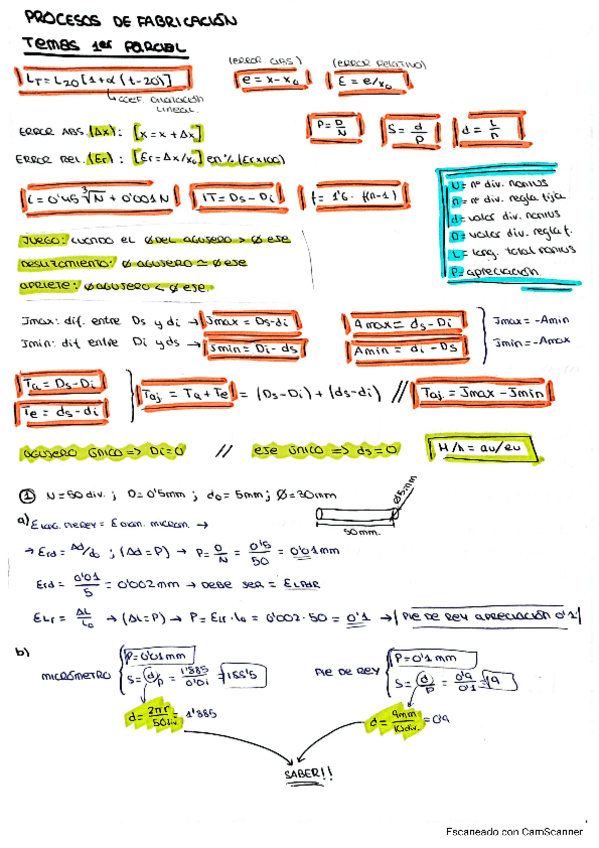 PROCESOS DE FABRICACIÓN
TEMAS 1er PARCIAL
(ERROR ABS) (ERROR RELATIVO)
L_T = L_20 [1+α (t-20)] e = x - x_0 E = e/x_0
↳ COEF. DILATACIÓN LINEAL
ERROR ABS. (Δx): [x = x + Δx] P = D/N S = d/P d = L/n
ERROR REL. (Er): [Er = Δx/x_0] en % (Er x 100)
i = 0'45 ∛N + 0'001N IT = Ds - Di f = 1'6 · f(n-1)
N = nº div. nonius
n = nº div. regla fija
d = valor div. nonius
D = valor div. regla f.
L = long. total nonius
P = apreciación
JUEGO: cuando el Ø del agujero > Ø eje
DESLIZAMIENTO: Ø agujero ≃ Ø eje
APRIETE: Ø agujero < Ø eje.
Jmax: dif. entre Ds y di → Jmax = Ds - di Amax = ds - Di Jmax = -Amin
Jmin: dif entre Di y ds → Jmin = Di - ds Amin = di - Ds Jmin = -Amax
Ta = Ds - Di
Te = ds - di
Taj. = Ta + Te = (Ds - Di) + (ds - di) // Taj. = Jmax - Jmin
agujero único => Di = 0 // eje único => ds = 0 H/h = au/eu
① N = 50 div. ; D = 0'5mm ; d_0 = 5mm ; Ø = 30mm
Ø5mm
50mm.
a) E long. pierey = E diam. microm. →
→ Erd = Δd/d_0 ; (Δd = P) → P = D/N = 0'5/50 = 0'01mm
Erd = 0'01/5 = 0'002mm → DEBE SER = ELPdR
ELr = ΔL/L_0 → (ΔL = P) → P = Elr · L_0 = 0'002 · 50 = 0'1 → | PIE DE REY APRECIACIÓN 0'1 |
b)
MICRÓMETRO P = 0'01mm
S = d/P = 1'885/0'01 = 188'5
d = 2πr/50div. = 1'885
PIE DE REY P = 0'1mm
S = d/P = 0'9/0'1 = 9
d = 9mm/10div. = 0'9
SABER!!
Escaneado con CamScanner